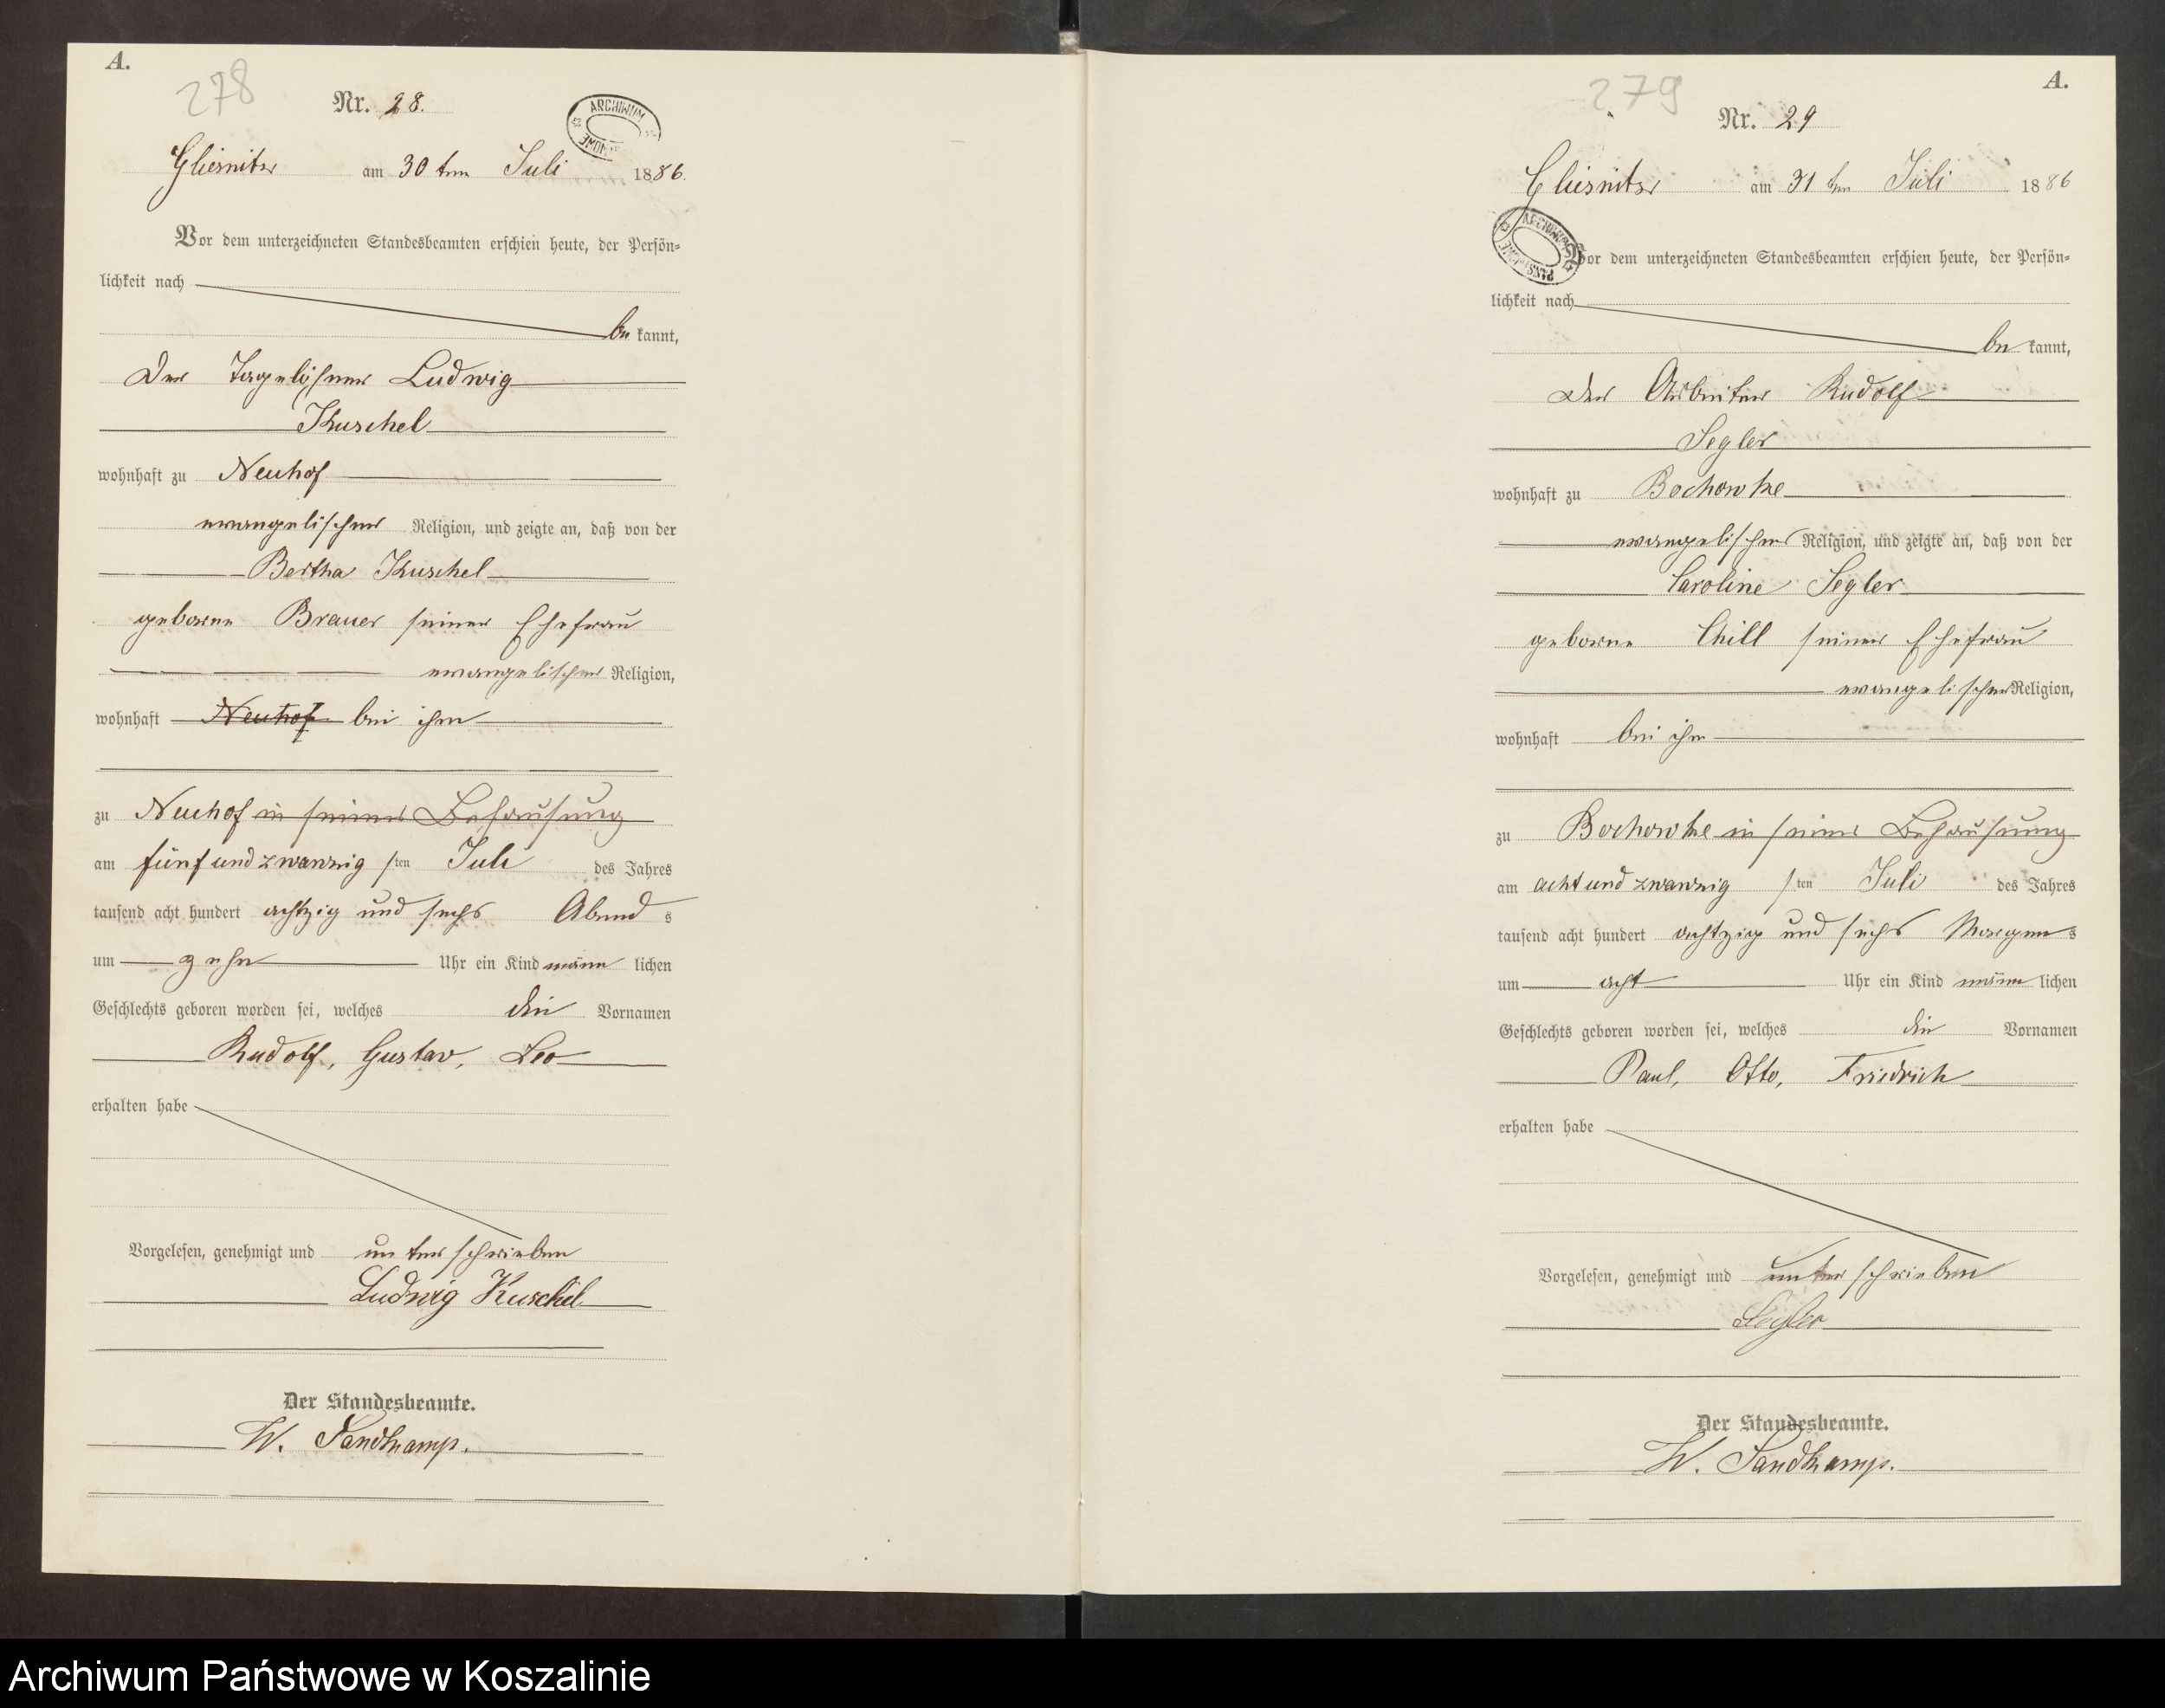 A.
278
Nr. 28.
ARCHIWUM
Gliesnitz am 30 ten Juli 1886.
Vor dem unterzeichneten Standesbeamten erschien heute, der Persön-
lichkeit nach
be kannt,
der Tagelöhner Ludwig
Kuschel
wohnhaft zu Neuhof
evangelischer Religion, und zeigte an, daß von der
Bertha Kuschel
geborne Brauer seiner Ehefrau
evangelischer Religion,
wohnhaft Neuhof bei ihm
zu Neuhof in seiner Behausung
am fünf und zwanzig sten Juli des Jahres
tausend acht hundert achtzig und sechs Abend s
um zehn Uhr ein Kind männ lichen
Geschlechts geboren worden sei, welches die Vornamen
Rudolf, Gustav, Leo
erhalten habe
Vorgelesen, genehmigt und unterschrieben
Ludwig Kuschel
Der Standesbeamte.
W. Sandkamp.
A.
279
Nr. 29
Gliesnitz am 31 ten Juli 1886
ARCHIWUM PAŃSTWOWE
Vor dem unterzeichneten Standesbeamten erschien heute, der Persön-
lichkeit nach
be kannt,
der Arbeiter Rudolf
Segler
wohnhaft zu Bochowke
evangelischer Religion, und zeigte an, daß von der
Caroline Segler
geborne Chill seiner Ehefrau
evangelischer Religion,
wohnhaft bei ihm
zu Bochowke in seiner Behausung
am acht und zwanzig sten Juli des Jahres
tausend acht hundert achtzig und sechs Morgen s
um acht Uhr ein Kind männ lichen
Geschlechts geboren worden sei, welches die Vornamen
Paul, Otto, Friedrich
erhalten habe
Vorgelesen, genehmigt und unterschrieben
Segler
Der Standesbeamte.
W. Sandkamp.
Archiwum Państwowe w Koszalinie